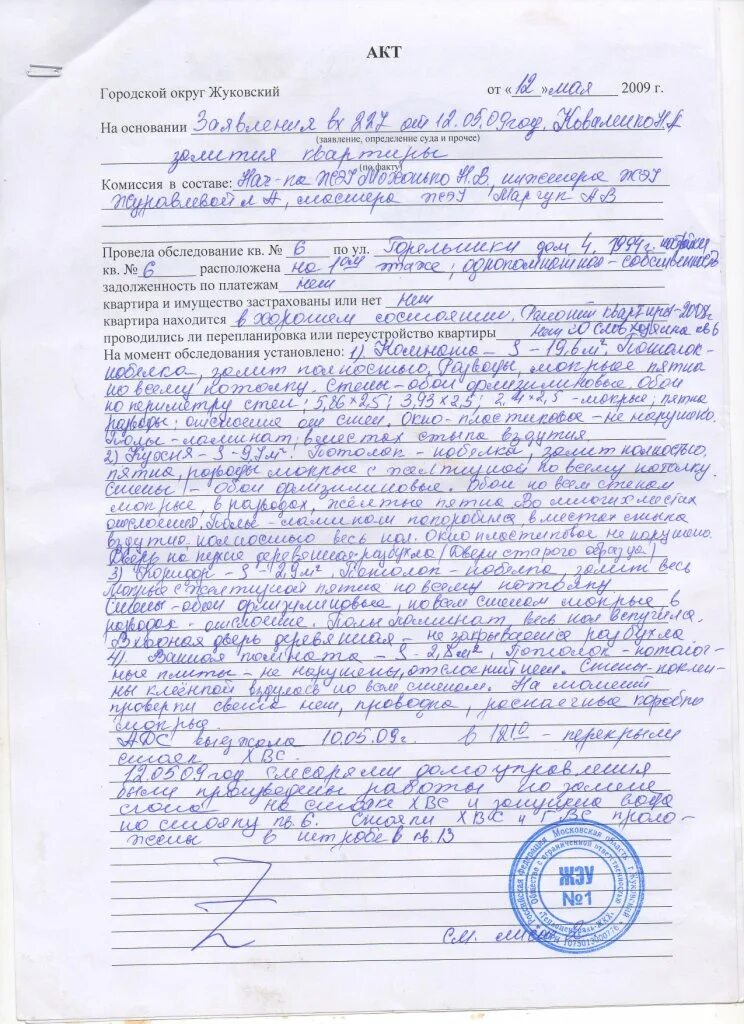 АКТ
Городской округ Жуковский от «12» мая 2009 г.
На основании Заявления вх 227 от 12.05.09 год. Коваленко Н.А
(заявление, определение суда и прочее)
залития квартиры
(по факту)
Комиссия в составе: Нач-ка ЖЭУ Моханько Н.В, инженера ЖЭУ
Журавлевой Л А, мастера ЖЭУ Марчук А В
Провела обследование кв. № 6 по ул. Горельники дом 4, 1994г. постройки
кв. № 6 расположена на 1ом этаже, однокомнатная - собственность
задолженность по платежам нет
квартира и имущество застрахованы или нет нет
квартира находится в хорошем состоянии. Ремонт квартиры-2008г
проводились ли перепланировка или переустройство квартиры нет со слов хозяина кв 6
На момент обследования установлено: 1) Комната - S - 19,6 м², Потолок-
побелка, залит полностью, Разводы, мокрые пятна
по всему потолку. Стены - обои флизилиновые. Обои
по периметру стен; 5,86×2,5; 3,93×2,5; 2,41×2,5 - мокрые; пятна
разводы; отслоение от стен. Окно - пластиковое - не нарушено.
Полы - ламинат, в местах стыка вздутия.
2) Кухня - S - 9,7 м². Потолок - побелка, залит полностью,
пятна, разводы мокрые с желтизной по всему потолку.
Стены - обои флизилиновые. Обои по всем стенам
мокрые, в разводах, жёлтые пятна. Во многих местах
отслоения. Полы - ламинат покоробило, в местах стыка
вздутие полностью весь пол. Окно пластиковое не нарушено.
Дверь на кухне деревянная - разбухла (Двери старого образца)
3) Коридор - S - 2,9 м². Потолок - побелка, залит весь
мокрые с желтизной пятна по всему потолку
Стены - обои флизилиновые, по всем стенам мокрые в
разводах - отслоение. Полы ламинат, весь пол вспучило.
Входная дверь деревянная - не закрывается разбухла
4). Ванная комната - S - 2,8 м². Потолок - потолоч-
ные плиты - не нарушены, отслоений нет. Стены - поклее-
ны клеёнкой вздулось по всем стенам. На момент
проверки света нет, проводка, распаечные коробки
мокрые.
АДС выезжала 10.05.09г. в 12 10 - перекрыли
стояк ХВС.
12.05.09 год слесарями домоуправления
были произведены работы по замене
на стояке ХВС и запущена вода
по стояку кв. 6. Стояки ХВС и ГВС проло-
жены в штробе в кв. 13
См. лист 2
Российская Федерация Московская область г. Жуковский
Общество с ограниченной ответственностью
ЖЭУ
№1
1075013000776